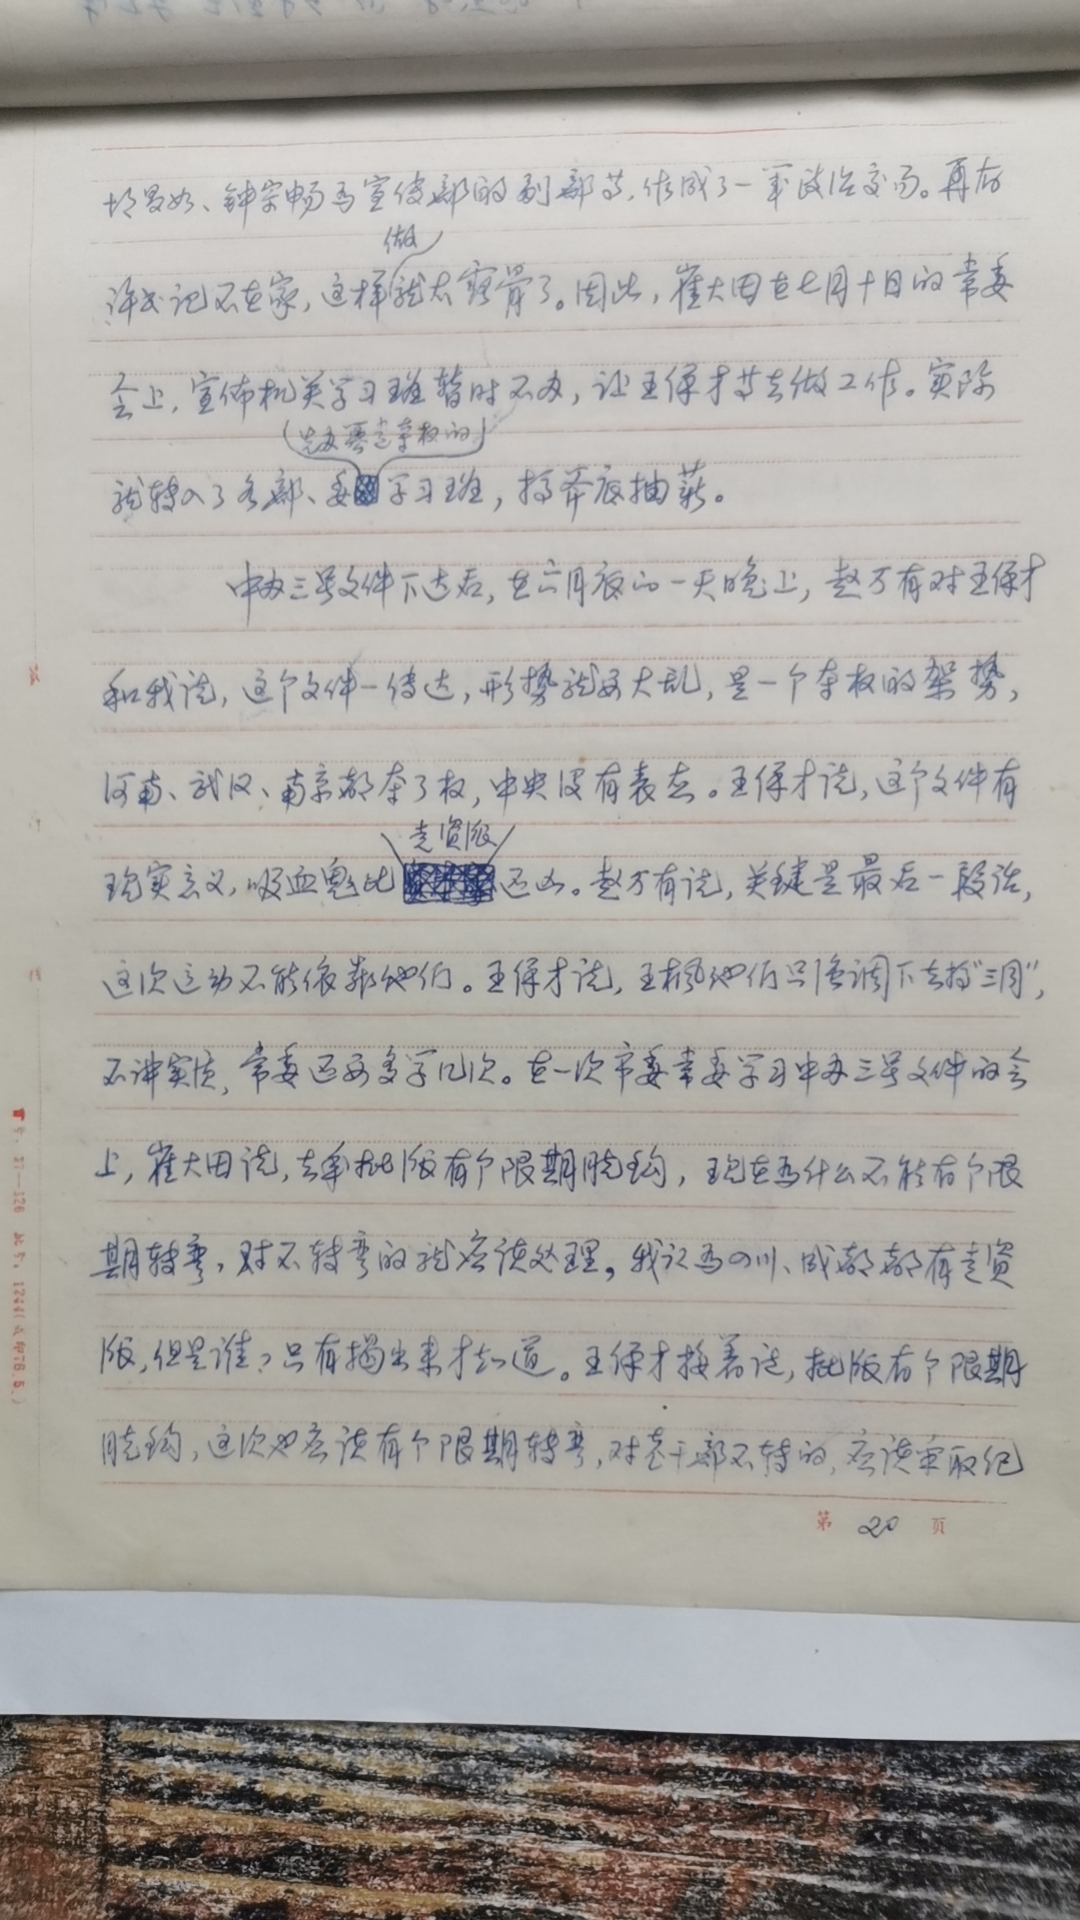 钟宗畅为宣传部的副部长,作成了一笔政治交易。再有
做
许书记不在家,这样就太露骨了。因此,崔大田在七月十日的常委
会上,宣佈机关学习班暂时不办,让王保才等去做工作。实际
(先办要走夺权的)
就转入了各部、委学习班,搞斧底抽薪。
中办三号文件下达后,在六月底的一天晚上,赵万有对王保才
和我说,这个文件一传达,形势就要大乱,是一个夺权的架势,
河南、武汉、南京都夺了权,中央没有表态。王保才说,这个文件有
走资派
现实意义,吸血鬼比还凶。赵万有说,关键是最后一段话,
这次运动不能依靠他们。王保才说,王枫他们只强调下去搞"三同",
不讲实质,常委还要多学几次。在一次市委常委学习中办三号文件的会
上,崔大田说,去年批派有个限期脱钩,现在为什么不能有个限
期转弯,对不转弯的就应该处理。我认为四川、成都都有走资
派,但是谁?只有揭出来才知道。王保才接着说,批派有个限期
脱钩,这次也应该有个限期转弯,对老干部不转的,应该采取纪
第 20 页